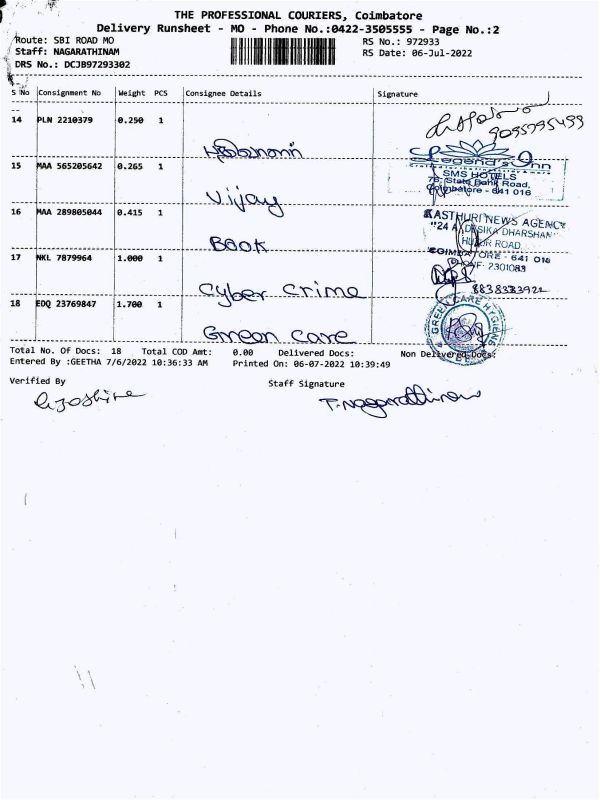 THE PROFESSIONAL COURIERS, Coimbatore
Delivery Runsheet - MO - Phone No.:0422-3505555 - Page No.:2
Route: SBI ROAD MO
RS No.: 972933
Staff: NAGARATHINAM
RS Date: 06-Jul-2022
DRS No.: DCJB97293302
S No Consignment No Weight PCS Consignee Details Signature
14 PLN 2210379 0.250 1
9095795499
Legend's Inn
SMS HOTELS
76, State Bank Road,
Coimbatore - 641 018
15 MAA 565205642 0.265 1
Vijay
16 MAA 289805044 0.415 1
Book
KASTHURI NEWS AGENCY
"24 A, DESIKA DHARSHAN"
HUZUR ROAD
COIMBATORE - 641 018
PHONE: 2301083
17 NKL 7879964 1.000 1
Cyber Crime
8838333922
18 EDQ 23769847 1.700 1
Green Care
GREEN CARE HYGIENE
Total No. Of Docs: 18 Total COD Amt: 0.00 Delivered Docs: Non Delivered Docs:
Entered By :GEETHA 7/6/2022 10:36:33 AM Printed On: 06-07-2022 10:39:49
Verified By Staff Signature
T. Nagarathinam